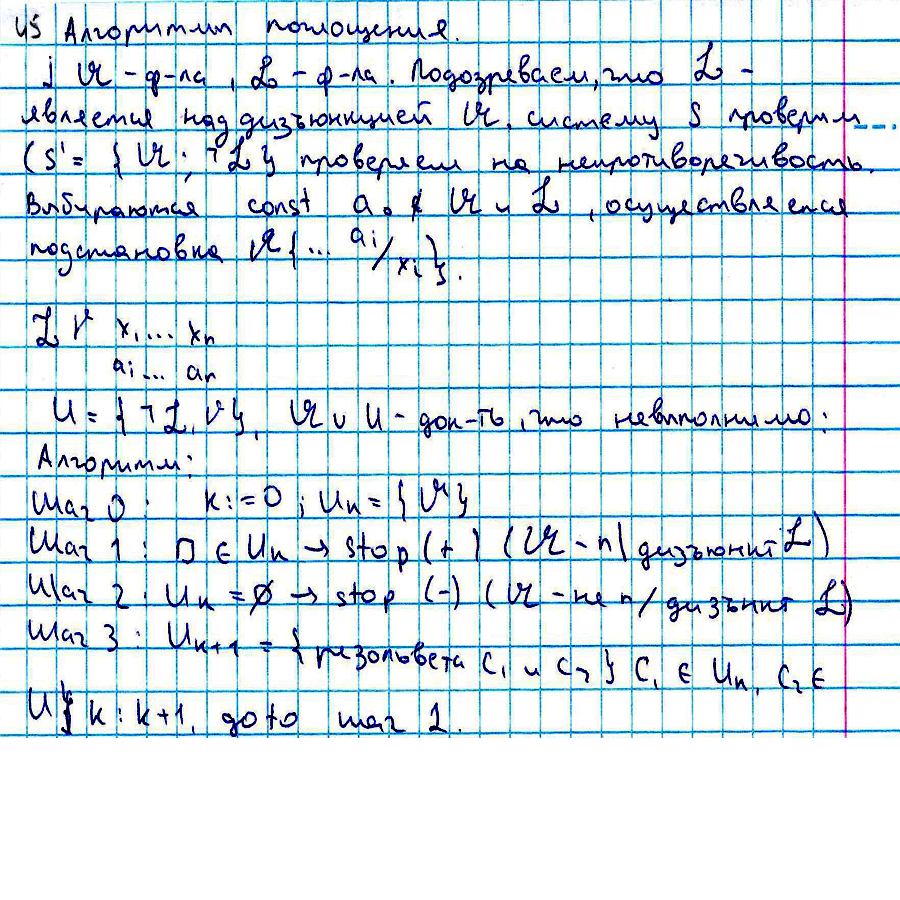 45 Алгоритм поглощения.
] 𝔄 - ф-ла, ℒ - ф-ла. Подозреваем, что ℒ -
является наддизъюнкцией 𝔄, систему S проверим
(S' = { 𝔄; ¬ℒ} проверяем на непротиворечивость.
Выбираются const a₀ ∉ 𝔄 и ℒ, осуществляется
подстановка 𝔄{... aᵢ/xᵢ}.
ℒ V x₁... xₙ
aᵢ... aₙ
U = {¬ℒ, V}, 𝔄 ∪ U - док-ть, что невыполнимо:
Алгоритм:
Шаг 0: k:=0; Uₖ = {𝔄}
Шаг 1: □ ∈ Uₖ → stop (+) (𝔄 - п/дизъюнкт ℒ)
Шаг 2: Uₖ = ∅ → stop (-) (𝔄 - не п/дизънкт ℒ)
Шаг 3: Uₖ₊₁ = {резольвета C₁ и C₂} C₁ ∈ Uₖ, C₂ ∈
U} k: k+1, goto шаг 1.